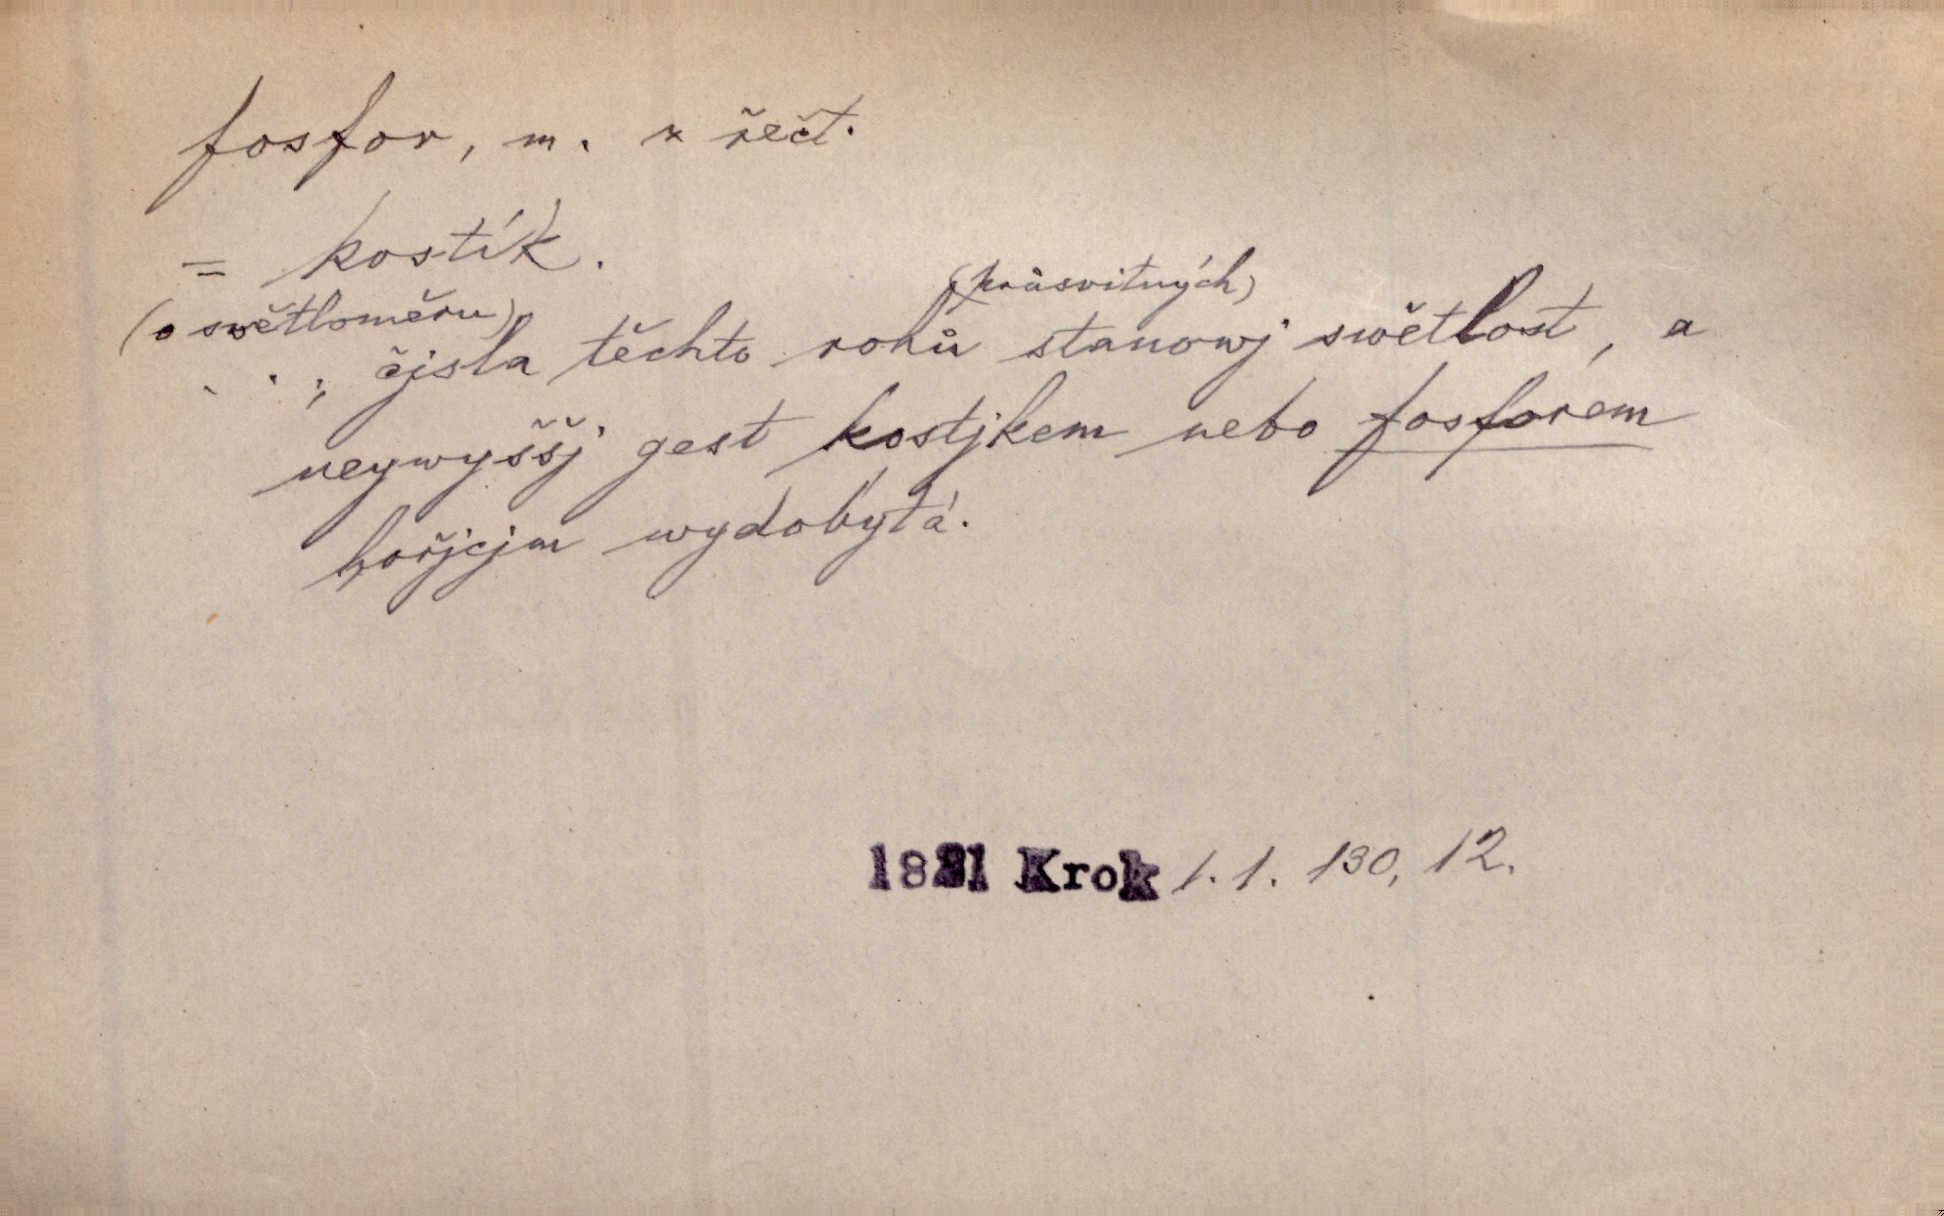 fosfor, m. z řečt.
= kostík.
(průsvitných)
(o swětloměru)
. . ., čjsla těchto rohů stanowj swětlost, a
neywyššj gest kostjkem nebo fosforem
hořjcjm wydobytá.
1821 Krok 1. 1. 130, 12.